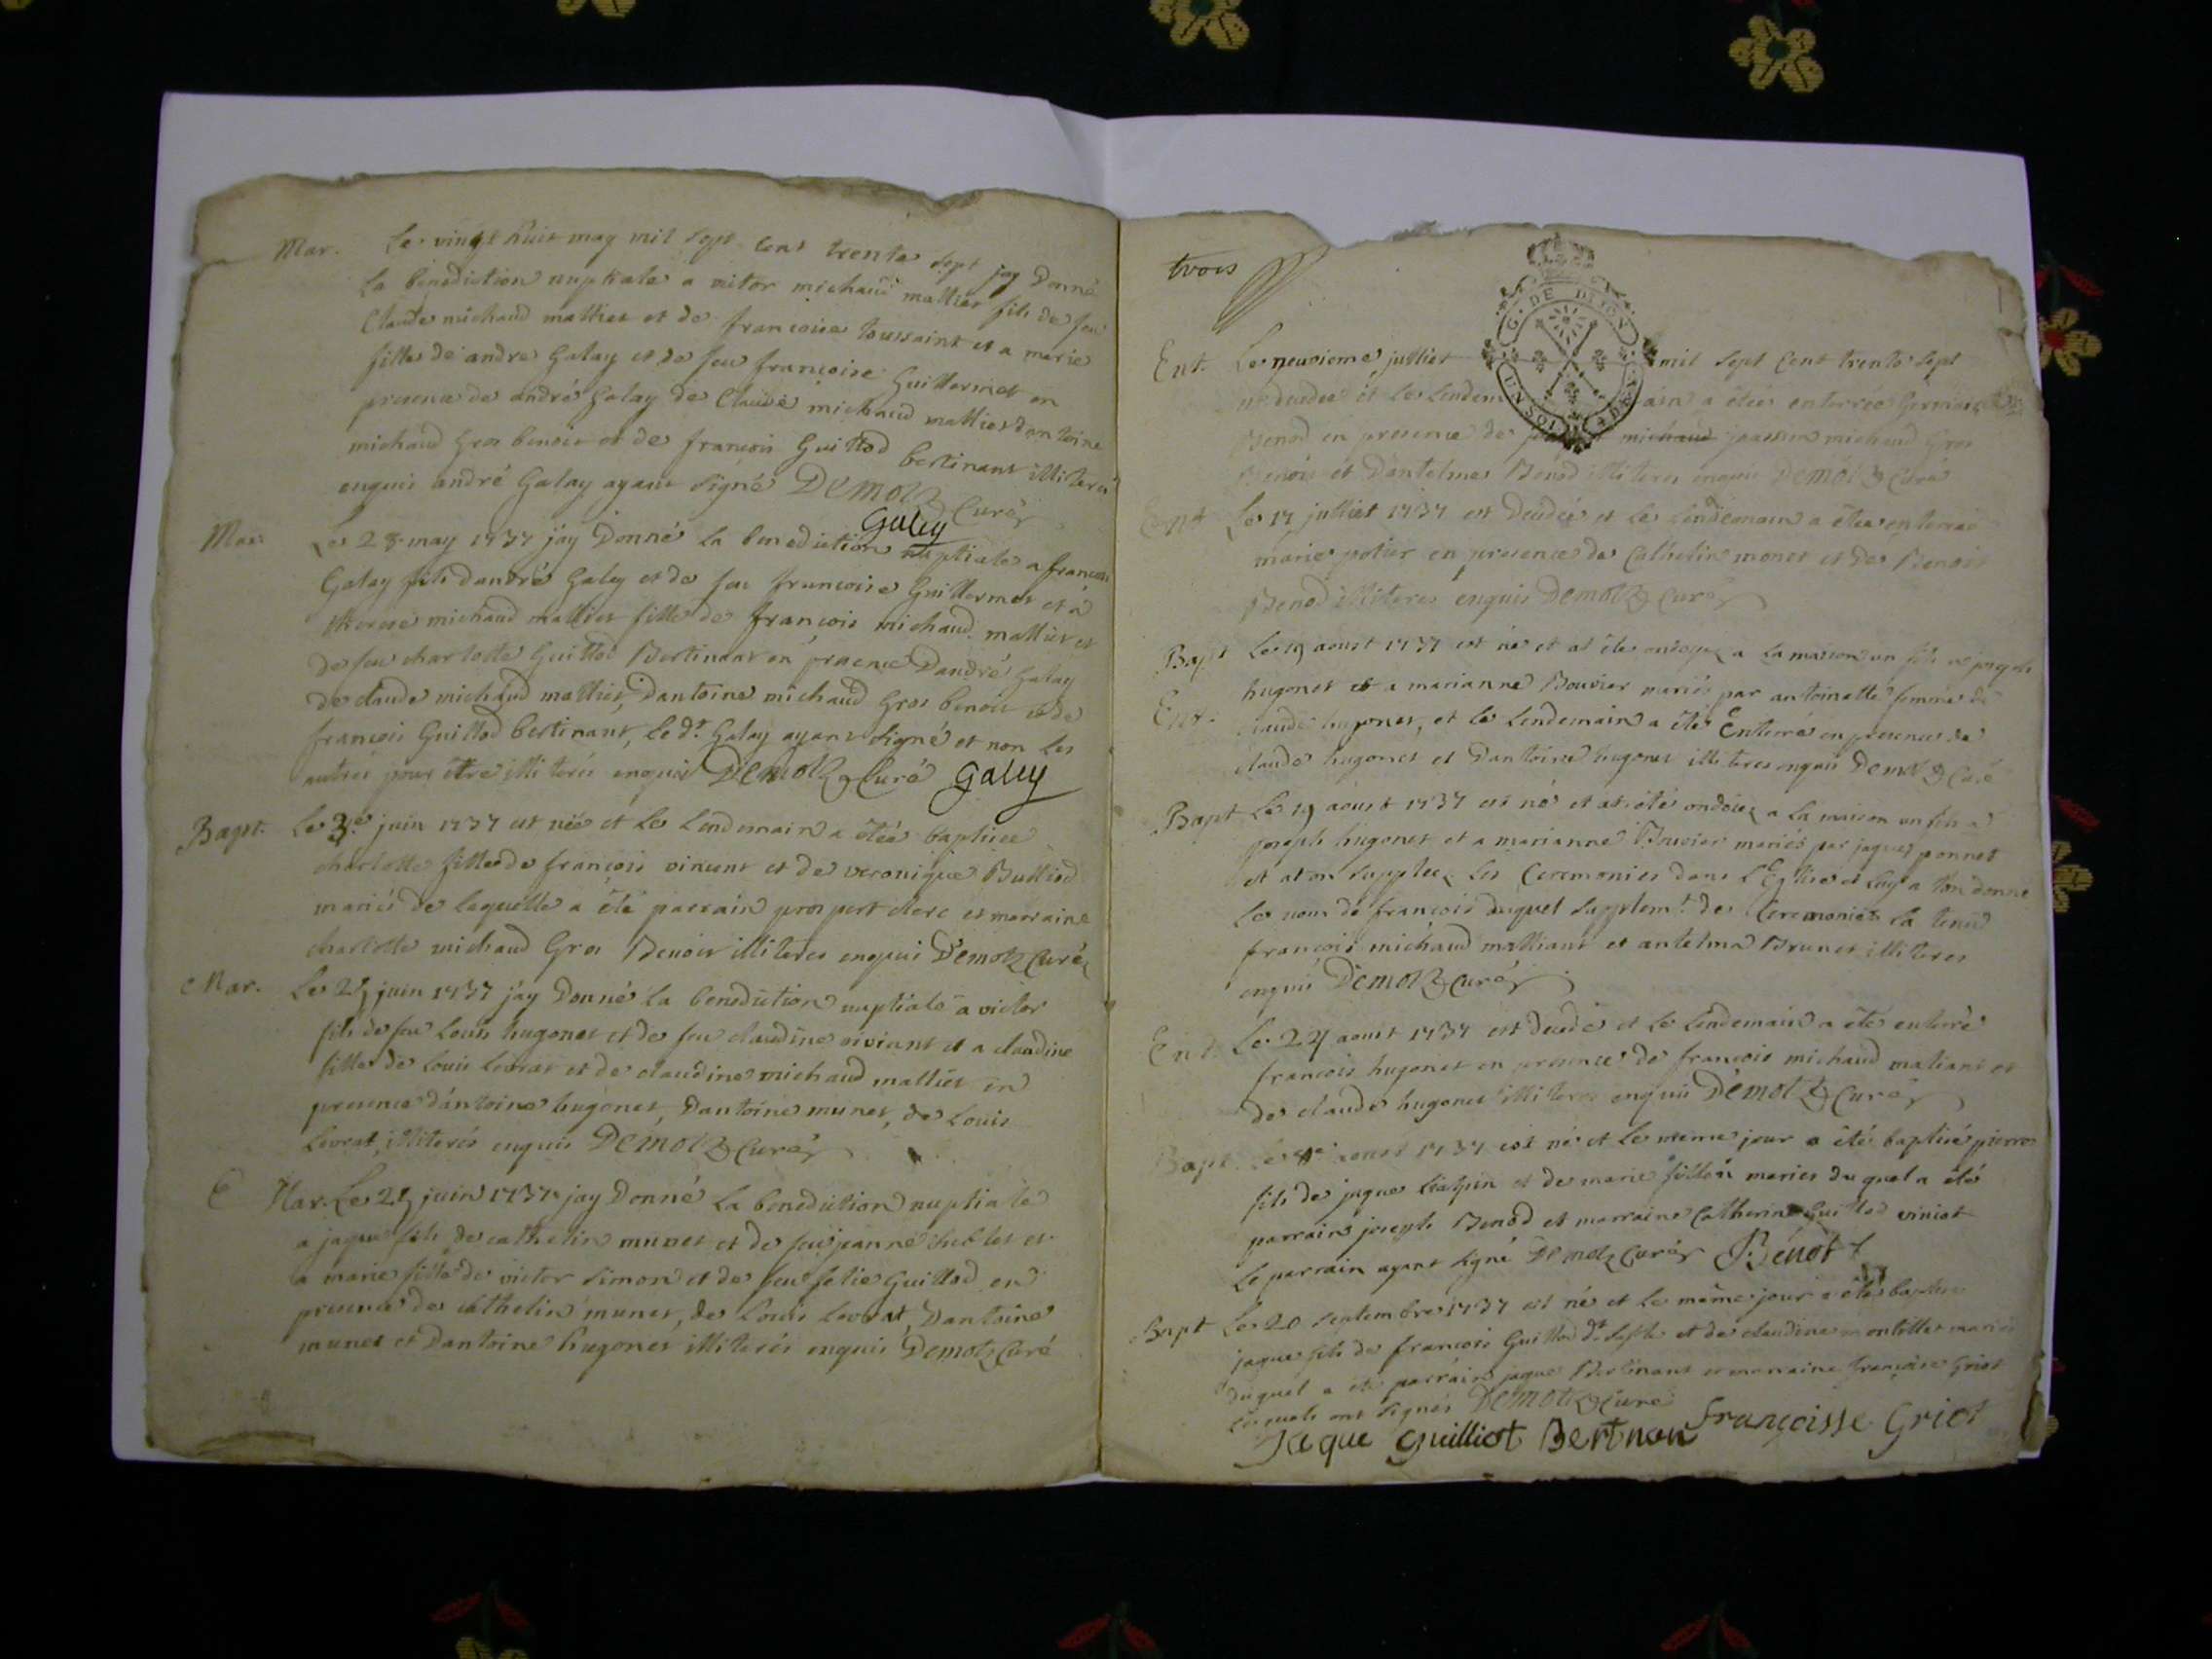 Mar. Le vingt huit may mil sept cent trente sept jay Donné
la benediction nuptiale a victor michaud mallier fils de feu
Claude michaud mallier et de francoise toussaint et a marie
fille de andre Galay et de feu françoise Guillermet en
presence de andré Galay de Claude michaud mallier dantoine
michaud Gros benoit et de francois Guillod bertinant illiteres
enquis andré Galay ayant signé Demotz Curé
Galey
Mar. Le 28 may 1737 jäy Donné la benediction nuptiale a francois
Galay fils dandré Galey et de feu francoise Guillermet et à
therese michaud mallier fille de françois michaud mallier et
de feu charlotte Guillod Bertinant en presence Dandré Galay
de claude michaud mallier, Dantoine michaud Gros benoit et de
françois Guillod bertinant, le dt. Galay ayant signé et non les
autres pour être illiterés enquis Demotz Curé Galey
Bapt. Le 3e juin 1737 est née et le lendemain a étée baptisee
charlotte fille de françois vincent et de veronique Bulliod
mariés de laquelle a été parrain prospert clerc et marraine
charlotte michaud Gros Benoit illiteres enquis Demotz Curé
Mar. Le 25 juin 1737 jäy Donné la benediction nuptiale a victor
fils de feu Louis hugonet et de feu claudine viviant et a claudine
fille de Louis Levrat et de claudine michaud mallier en
presence dantoine hugonet, Dantoine munet, de Louis
Levrat illiterés enquis Demotz Curé
Mar. Le 25 juin 1737 jay Donné la benediction nuptiale
a jaque fils de cathelin munet et de feu jeanne et
a marie fille de victor simon et de feu Guillod en
presence de cathelin munet, de Louis Levrat, Dantoine
munet et Dantoine hugonet illiterés enquis Demotz Curé
trois
G. DE DIJON
UN SOL 4 DEN.
Ent. Le neuvieme julliet mil sept Cent trente sept
est decedée et le lendemain a étée enterrée
Benod en presence de michaud michaud Gros
Benoit et Dantelme Benod illiteres enquis Demotz Curé
Ent Le 17 julliet 1737 est Decedée et le lendemain a étée enterrée
marie potier en presence de Cathelin monet et de Benoit
Benod illiteres enquis Demotz Curé
Bapt Le 19 aoust 1737 est né et at été ondoyez a la maison un fils a joseph
hugonet et a marianne Bouvier mariés par antoinette femme de
Ent. claude hugonet, et le lendemain a été Enterré en presence de
claude hugonet et Dantoine hugonet illiteres enquis Demotz Curé
Bapt Le 19 aoust 1737 est né et at été ondoiez a la maison un fils a
joseph hugonet et a marianne Bouvier mariés par jaques ponnet
et at on supplee les Ceremonies dans l'Eglise et luy a ton donne
le nom de françois duquel supplemt. de Ceremonies la tenud
francois michaud malliant et antelma Brunet illiteres
enquis Demotz Curé
Ent. Le 27 aoust 1737 est decedé et le lendemain a été enterré
francois hugonet en presence de francois michaud maliant et
de claude hugonet illiteres enquis Demotz Curé
Bapt. Le aoust 1737 est né et le meme jour a été baptisé pierre
fils de jaque et de marie mariés duquel a été
parrain joseph Benod et marraine Catherine Guillod viniat
le parrain ayant signé Demotz Curé Benot
Bapt Le 20 septembre 1737 est né et le même jour a été baptisé
jaque fils de francois Guillod dt et de claudine montillet mariés
duquel a été parrain jaque Bertinant et marraine françoise Griot
lesquels ont signés Demotz Curé
Jaque guilliot Bertnan françoisse Griot